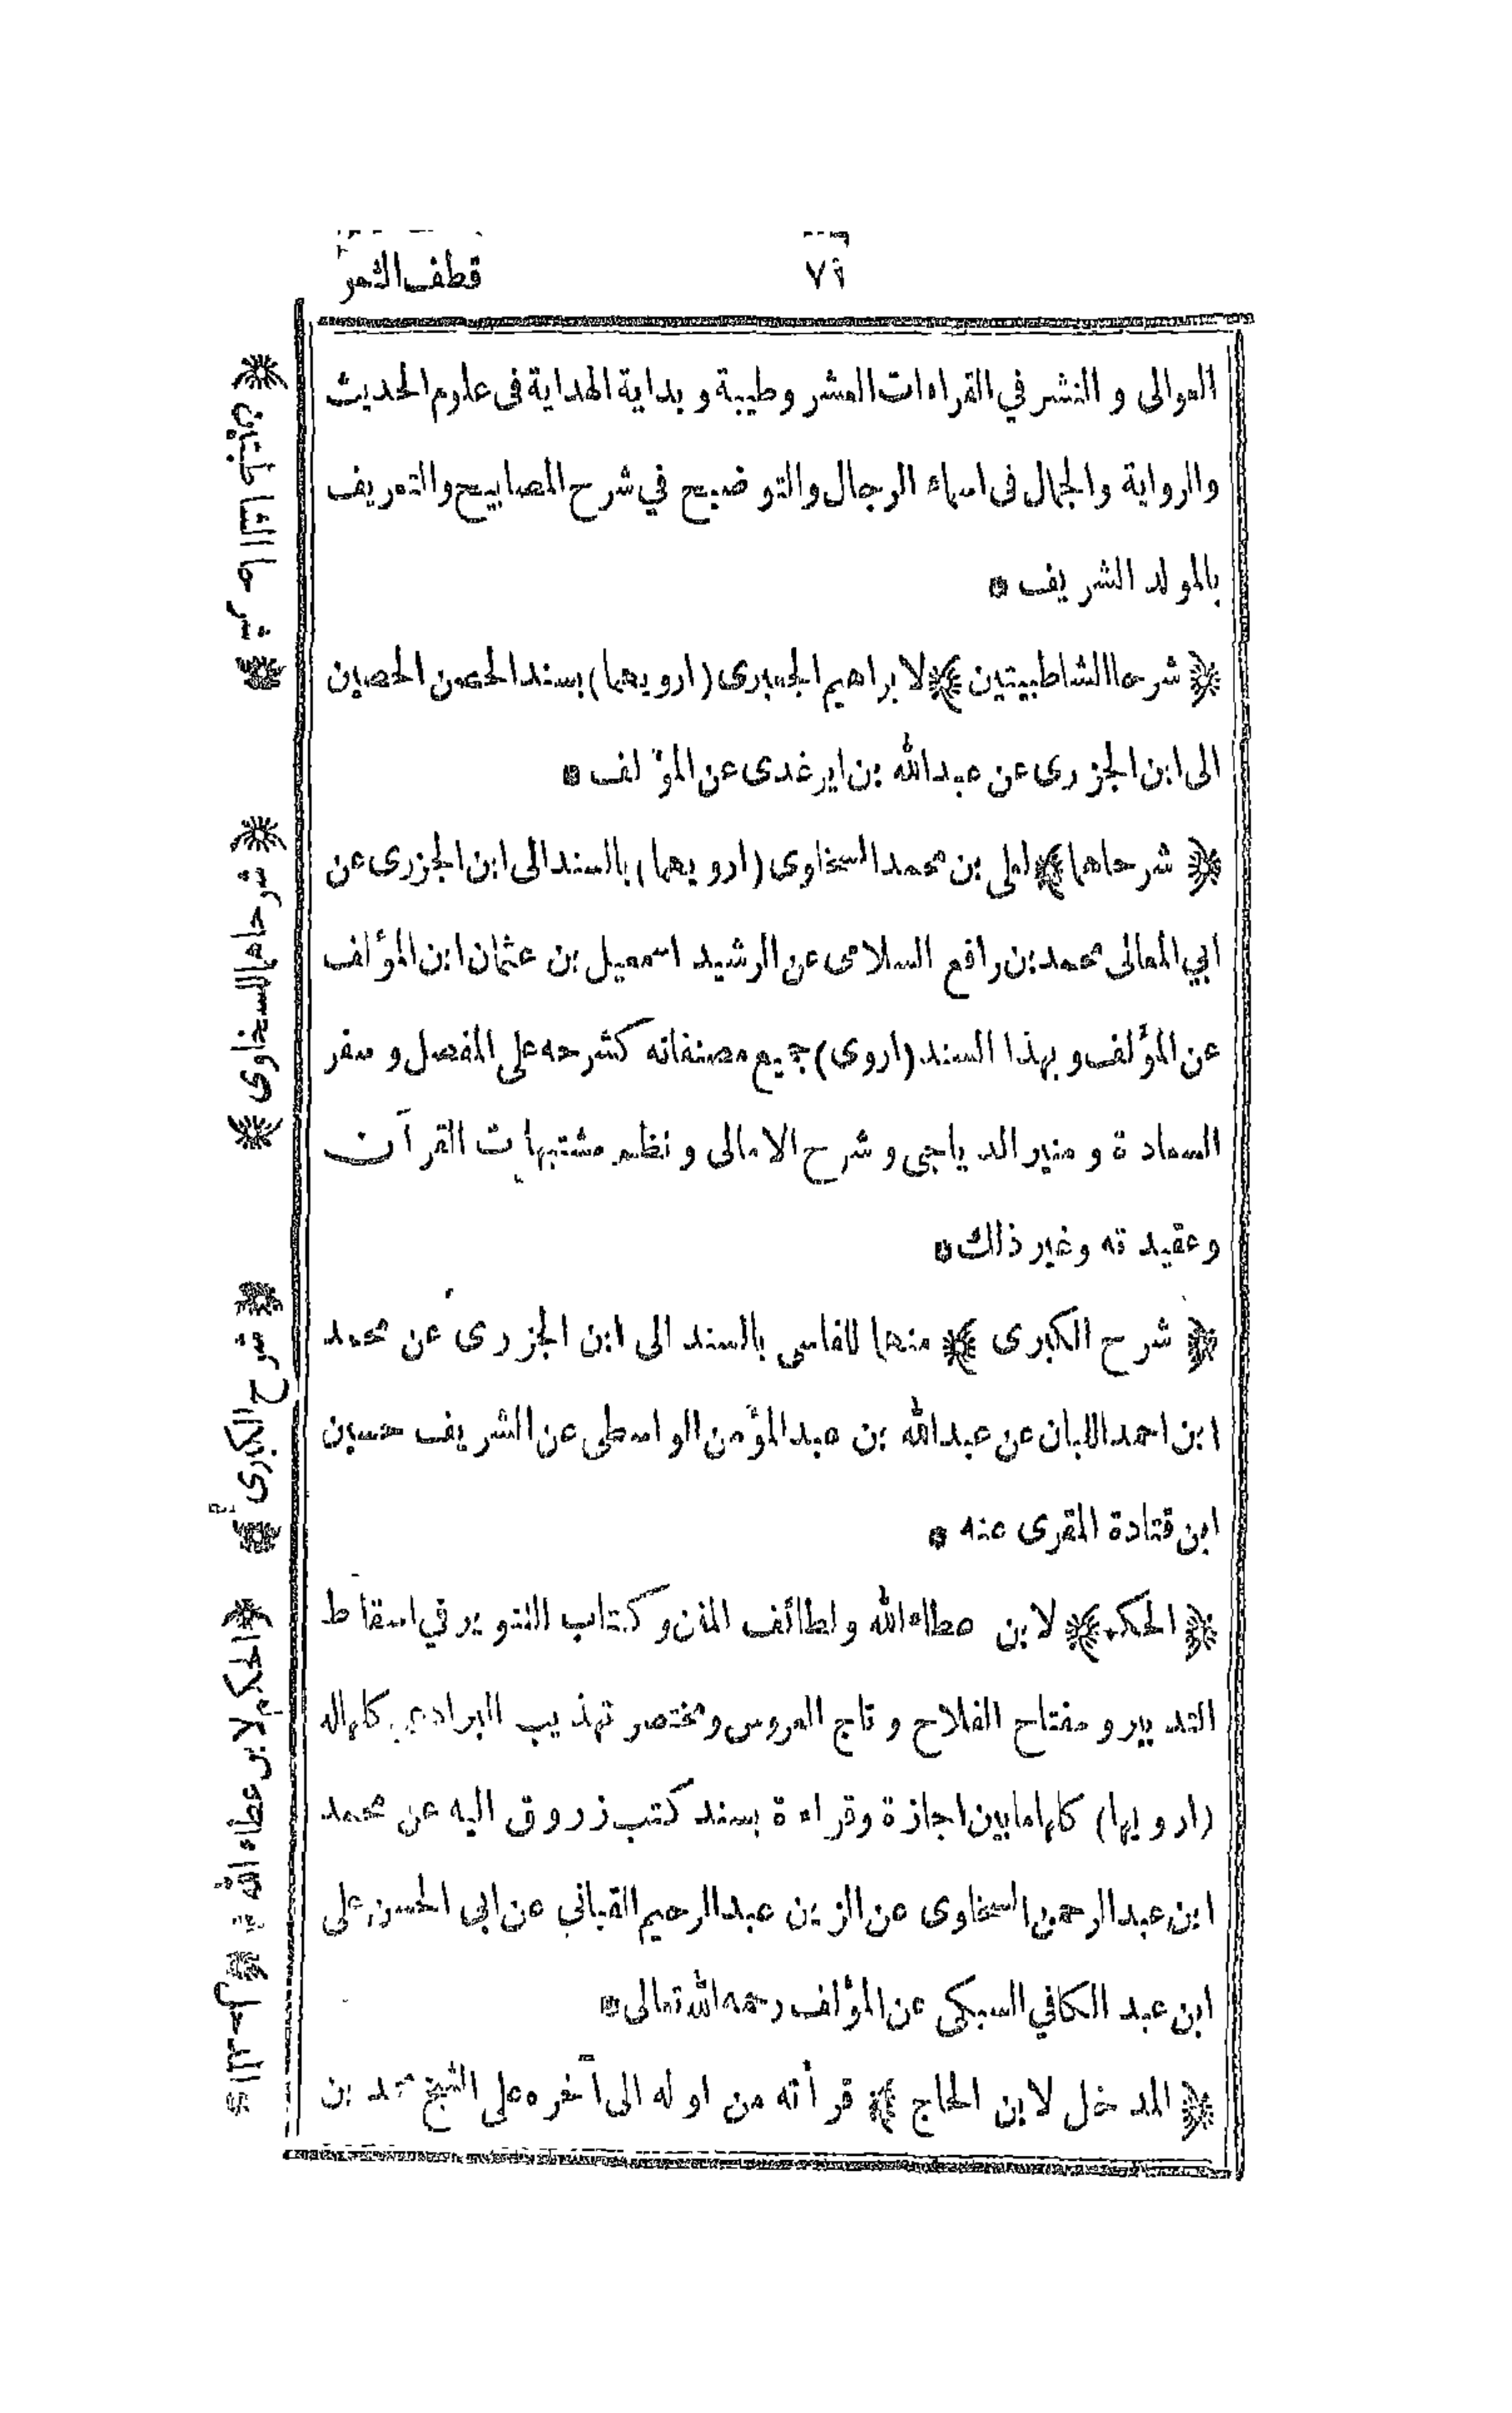 قطف الثمر
٧١
العوالى و النشر في القراءات العشر وطيبة و بداية الهداية فى علوم الحديث
والرواية والجمال فى اسماء الرجال والتوضيح في شرح المصابيح والتعريف
بالمولد الشريف
﴿ شرحا الشاطبيتين ﴾ لابراهيم الجعبرى (ارويهما) بسند الحصن الحصين
الى ابن الجزرى عن عبدالله بن ايرغدى عن المؤلف
﴿ شرحاهما ﴾ لعلى بن محمد السخاوى (ارويهما) بالسند الى ابن الجزرى عن
ابي المعالى محمد بن رافع السلامى عن الرشيد اسمعيل بن عثمان ابن المؤلف
عن المؤلف و بهذا السند (اروى) جميع مصنفاته كشرحه على المفصل و سفر
السعادة و منير الدياجى و شرح الامالى و نظم مشتبهات القرآن
وعقيدته وغير ذلك
﴿ شرح الكبرى ﴾ منها للفاسى بالسند الى ابن الجزرى عن محمد
ابن احمد اللبان عن عبدالله بن عبد المؤمن الواسطى عن الشريف حسين
ابن قتادة المقرى عنه
﴿ الحكم ﴾ لابن عطاء الله و لطائف المنن و كتاب التنوير في اسقاط
التدبير و مفتاح الفلاح و تاج العروس و مختصر تهذيب البرادعي كلها له
(ارويها) كلها ما بين اجازة وقراءة بسند كتب زروق اليه عن محمد
ابن عبدالرحمن السخاوى عن الزين عبدالرحيم القباني عن ابى الحسن على
ابن عبد الكافي السبكى عن المؤلف رحمه الله تعالى
﴿ المدخل لابن الحاج ﴾ قرأته من اوله الى آخره على الشيخ محمد بن
﴿ شرحا الشاطبيتين ﴾
﴿ شرحاهما للسخاوى ﴾
﴿ شرح الكبرى ﴾
﴿ الحكم لابن عطاء الله ﴾